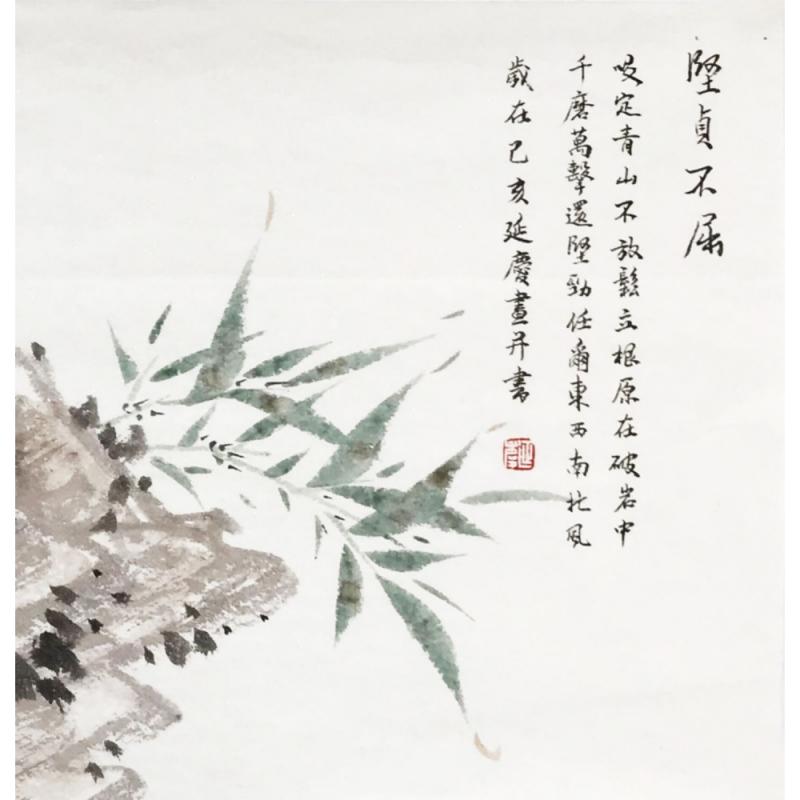 堅貞不屈
咬定青山不放鬆立根原在破岩中
千磨萬擊還堅勁任爾東西南北風
歲在己亥延慶畫并書